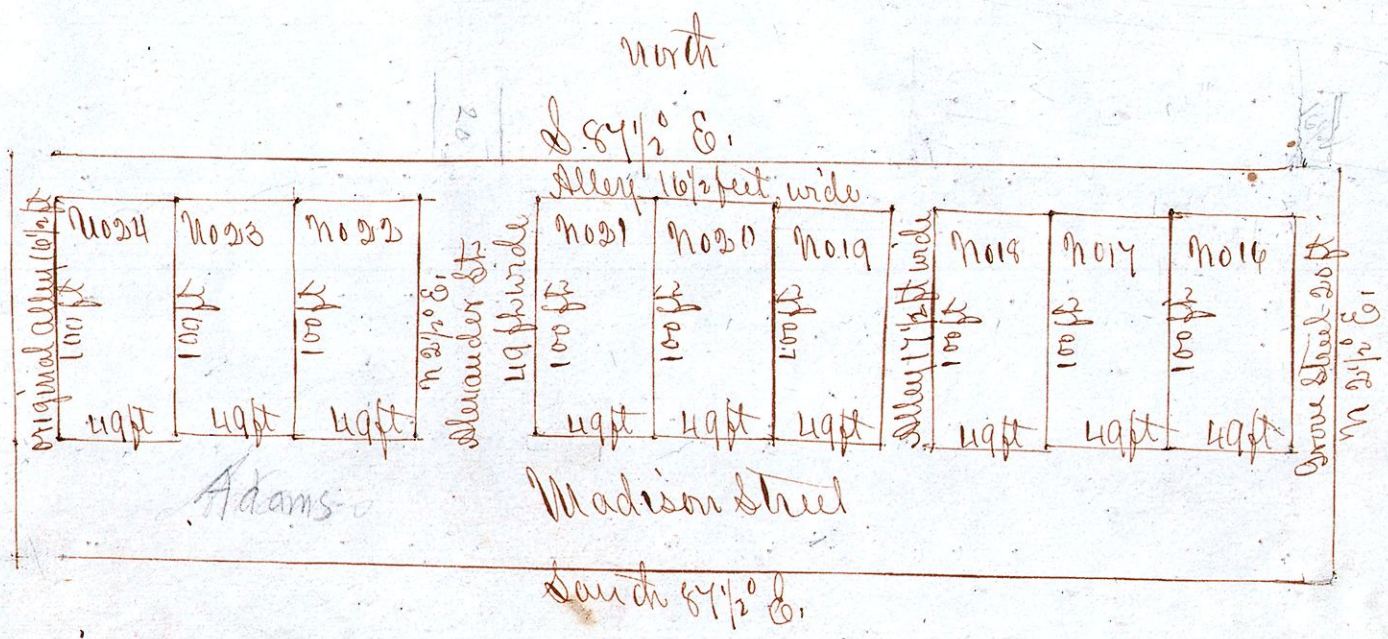 North
S. 87 1/2° E.
Alley 16 1/2 feet wide
original alley 16 1/2 ft
No 24
100 ft
49 ft
No 23
100 ft
49 ft
No 22
100 ft
49 ft
N 2 1/2° E.
Alexander Str
49 ft wide
No 21
100 ft
49 ft
No 20
100 ft
49 ft
No. 19
100 ft
49 ft
Alley 17 1/2 ft wide
No 18
100 ft
49 ft
No 17
100 ft
49 ft
No 16
100 ft
49 ft
Street 20 ft
N 2 1/2° E.
20
Adams
Madison Street
South 87 1/2° E.